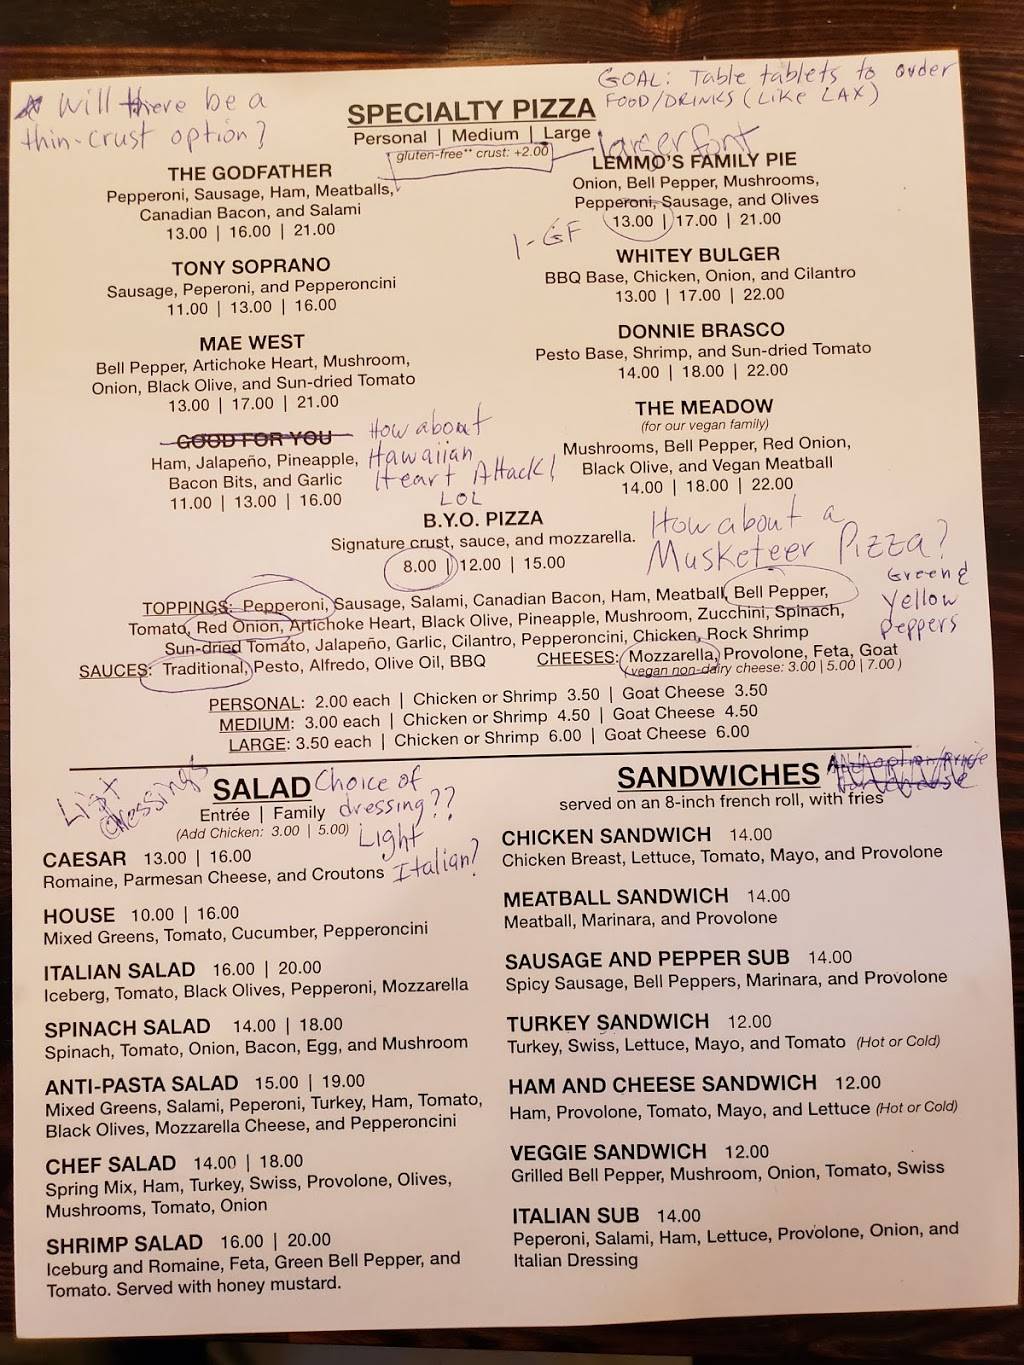 * Will there be a
thin-crust option?
GOAL: Table tablets to order
FOOD/DRINKS (Like LAX)
SPECIALTY PIZZA
Personal | Medium | Large
gluten-free** crust: +2.00
larger font
THE GODFATHER
Pepperoni, Sausage, Ham, Meatballs,
Canadian Bacon, and Salami
13.00 | 16.00 | 21.00
TONY SOPRANO
Sausage, Peperoni, and Pepperoncini
11.00 | 13.00 | 16.00
MAE WEST
Bell Pepper, Artichoke Heart, Mushroom,
Onion, Black Olive, and Sun-dried Tomato
13.00 | 17.00 | 21.00
GOOD FOR YOU
Ham, Jalapeño, Pineapple,
Bacon Bits, and Garlic
11.00 | 13.00 | 16.00
How about
Hawaiian
Heart Attack!
LOL
LEMMO'S FAMILY PIE
Onion, Bell Pepper, Mushrooms,
Pepperoni, Sausage, and Olives
13.00 | 17.00 | 21.00
1-GF
WHITEY BULGER
BBQ Base, Chicken, Onion, and Cilantro
13.00 | 17.00 | 22.00
DONNIE BRASCO
Pesto Base, Shrimp, and Sun-dried Tomato
14.00 | 18.00 | 22.00
THE MEADOW
(for our vegan family)
Mushrooms, Bell Pepper, Red Onion,
Black Olive, and Vegan Meatball
14.00 | 18.00 | 22.00
B.Y.O. PIZZA
Signature crust, sauce, and mozzarella.
8.00 | 12.00 | 15.00
How about a
Musketeer Pizza?
Green &
Yellow
Peppers
TOPPINGS: Pepperoni, Sausage, Salami, Canadian Bacon, Ham, Meatball, Bell Pepper,
Tomato, Red Onion, Artichoke Heart, Black Olive, Pineapple, Mushroom, Zucchini, Spinach,
Sun-dried Tomato, Jalapeño, Garlic, Cilantro, Pepperoncini, Chicken, Rock Shrimp
SAUCES: Traditional, Pesto, Alfredo, Olive Oil, BBQ
CHEESES: Mozzarella, Provolone, Feta, Goat
(vegan non-dairy cheese: 3.00 | 5.00 | 7.00 )
PERSONAL: 2.00 each | Chicken or Shrimp 3.50 | Goat Cheese 3.50
MEDIUM: 3.00 each | Chicken or Shrimp 4.50 | Goat Cheese 4.50
LARGE: 3.50 each | Chicken or Shrimp 6.00 | Goat Cheese 6.00
Light
dressings
SALAD
Entrée | Family
(Add Chicken: 3.00 | 5.00)
Choice of
dressing??
Light
Italian?
CAESAR 13.00 | 16.00
Romaine, Parmesan Cheese, and Croutons
HOUSE 10.00 | 16.00
Mixed Greens, Tomato, Cucumber, Pepperoncini
ITALIAN SALAD 16.00 | 20.00
Iceberg, Tomato, Black Olives, Pepperoni, Mozzarella
SPINACH SALAD 14.00 | 18.00
Spinach, Tomato, Onion, Bacon, Egg, and Mushroom
ANTI-PASTA SALAD 15.00 | 19.00
Mixed Greens, Salami, Peperoni, Turkey, Ham, Tomato,
Black Olives, Mozzarella Cheese, and Pepperoncini
CHEF SALAD 14.00 | 18.00
Spring Mix, Ham, Turkey, Swiss, Provolone, Olives,
Mushrooms, Tomato, Onion
SHRIMP SALAD 16.00 | 20.00
Iceburg and Romaine, Feta, Green Bell Pepper, and
Tomato. Served with honey mustard.
SANDWICHES
served on an 8-inch french roll, with fries
CHICKEN SANDWICH 14.00
Chicken Breast, Lettuce, Tomato, Mayo, and Provolone
MEATBALL SANDWICH 14.00
Meatball, Marinara, and Provolone
SAUSAGE AND PEPPER SUB 14.00
Spicy Sausage, Bell Peppers, Marinara, and Provolone
TURKEY SANDWICH 12.00
Turkey, Swiss, Lettuce, Mayo, and Tomato (Hot or Cold)
HAM AND CHEESE SANDWICH 12.00
Ham, Provolone, Tomato, Mayo, and Lettuce (Hot or Cold)
VEGGIE SANDWICH 12.00
Grilled Bell Pepper, Mushroom, Onion, Tomato, Swiss
ITALIAN SUB 14.00
Peperoni, Salami, Ham, Lettuce, Provolone, Onion, and
Italian Dressing